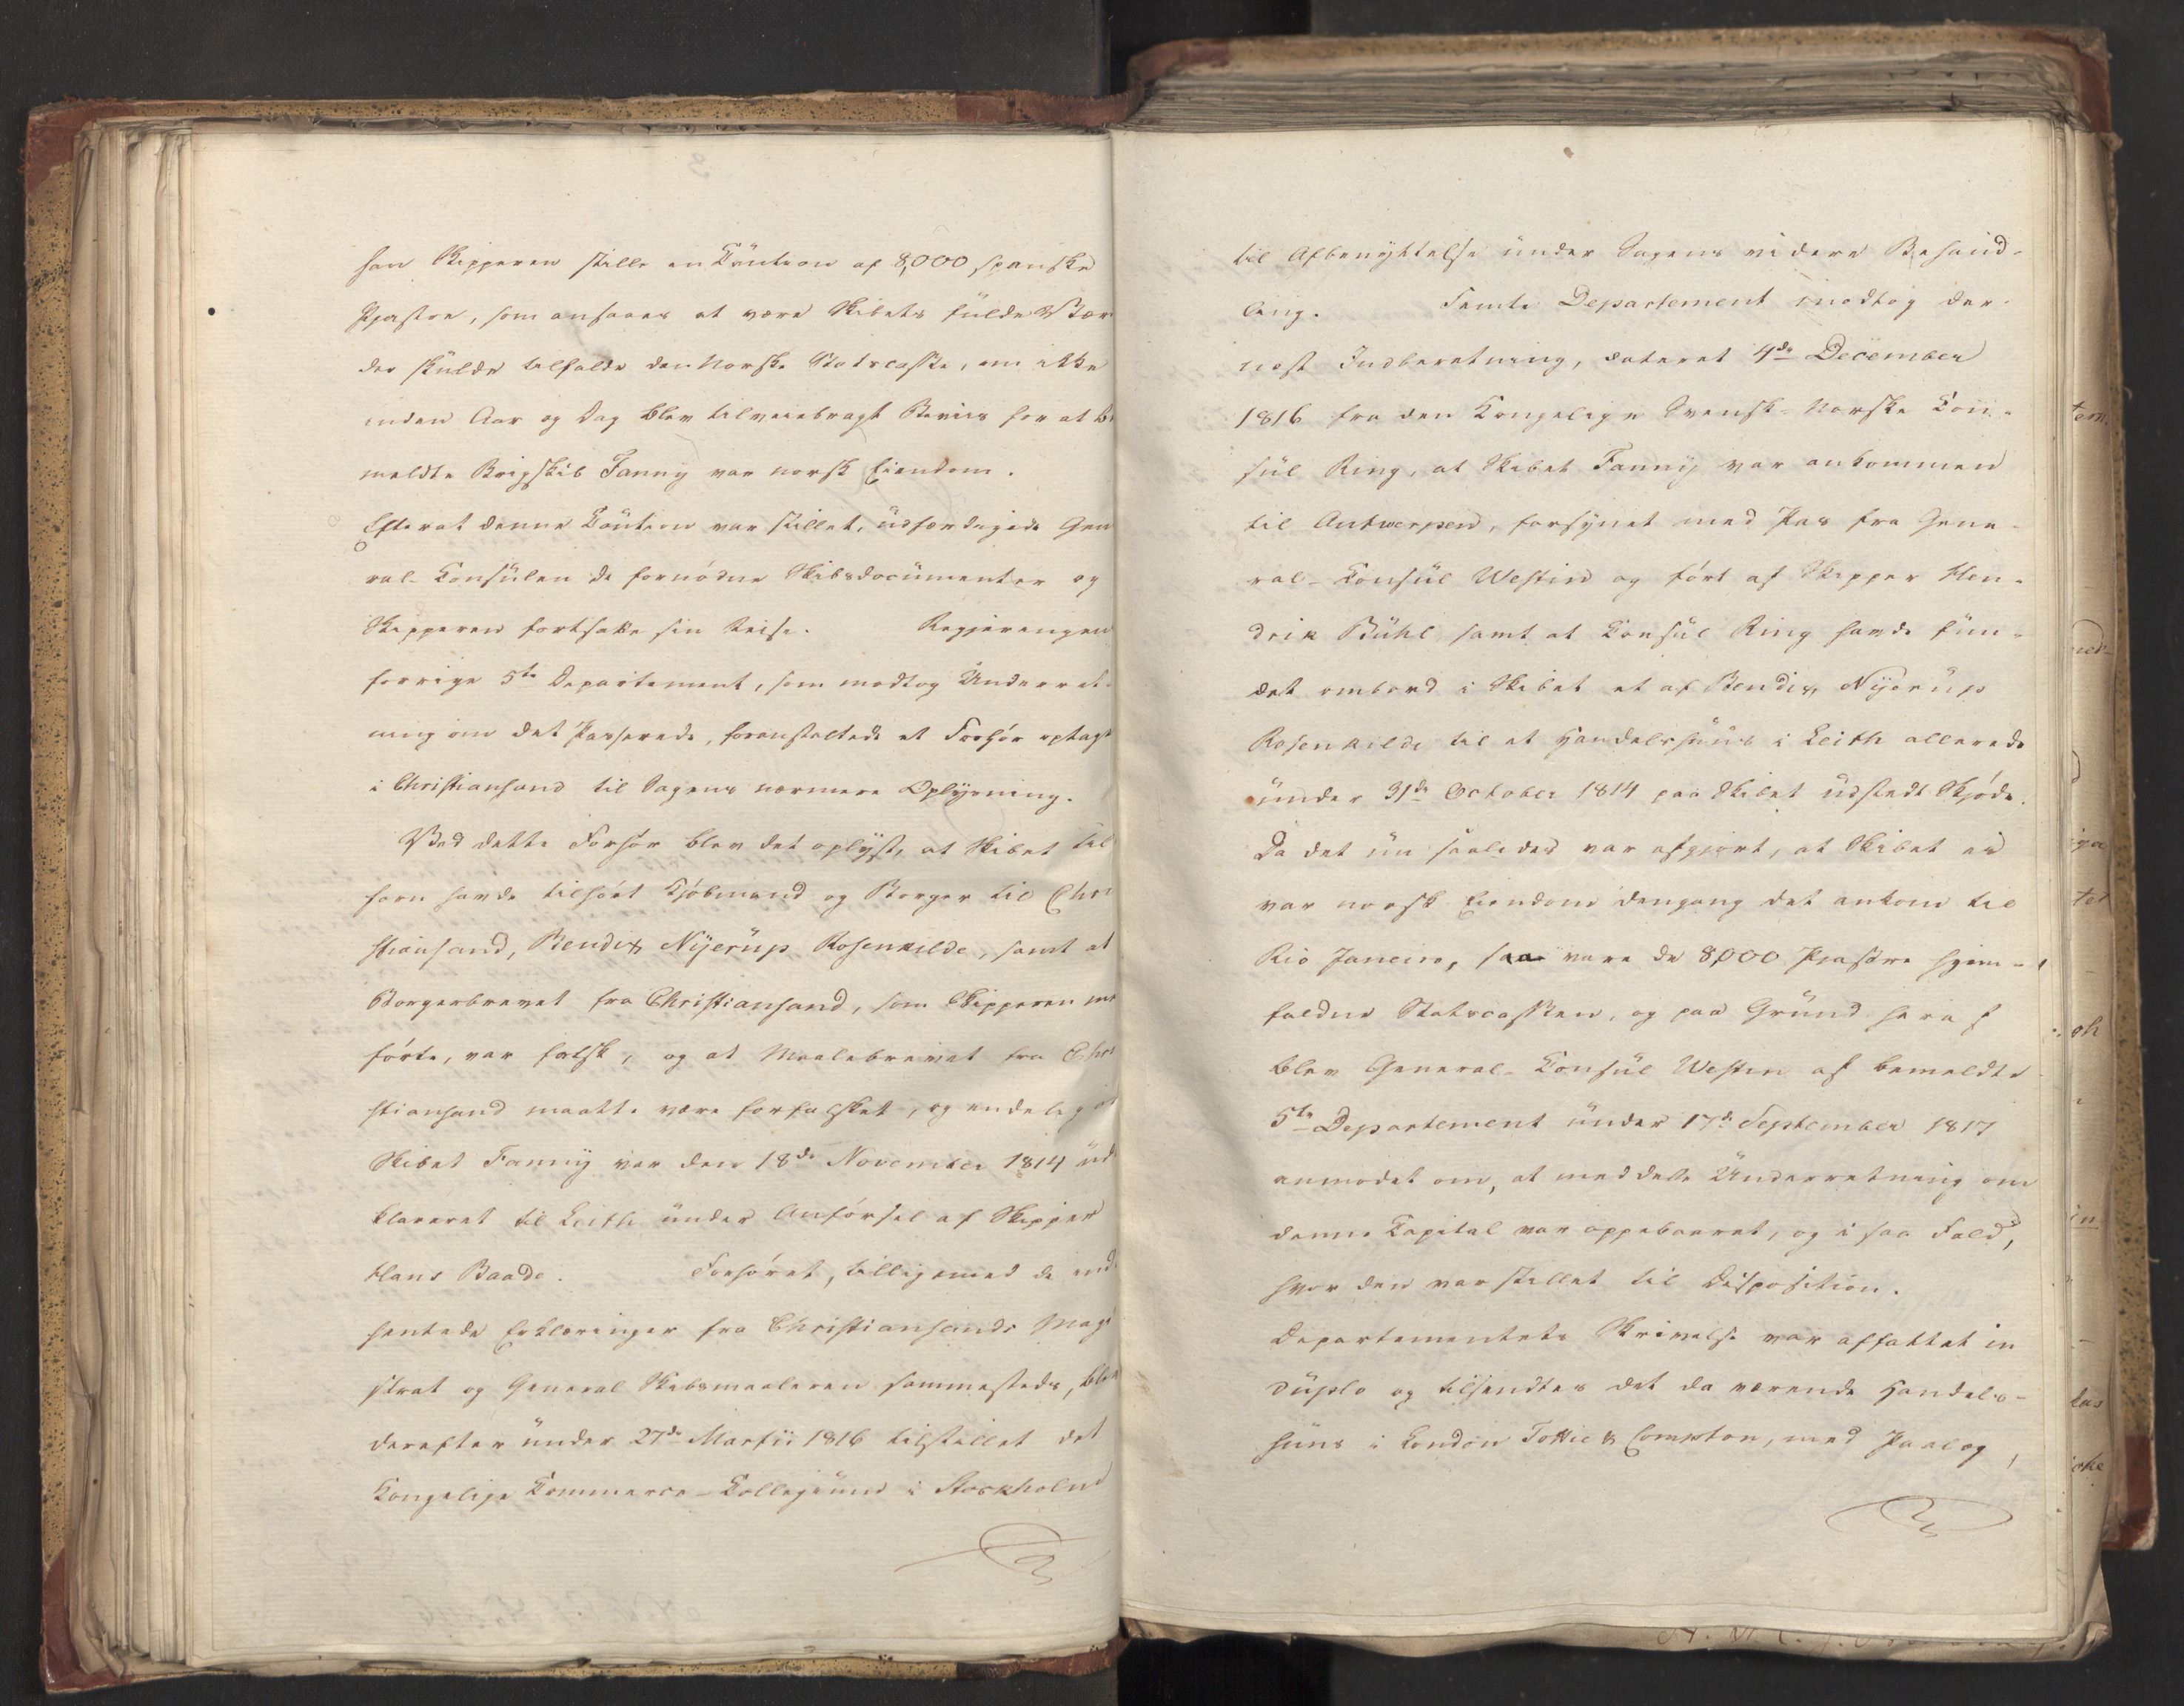 han Skipperen stille en Caution af 8,000 spanske
Pjastre, som ansaaes at være Skibets fulde Vær
der skulde tilfalde den Norske Statscasse, om ikke
inden Aar og Dag blev tilveiebragt Beviis for at be
meldte Brigskib Fanny var norsk Eiendom.
Efterat denne Caution var stillet, udfærdigede Gene
ral-Consulen de fornødne Skibsdocumenter og
Skipperen fortsatte sin Reise. Regjeringens
forrige 5te Departement, som modtog Underret-
ning om det Passerede, foranstaltede et Forhør optaget
i Christiansand til Sagens nærmere Oplysning.
Ved dette Forhør blev det oplyst, at Skibet til
forn havde tilhørt Kjøbmand og Borger til Chri
stiansand, Bendix Nyerup Rosenkilde, samt at
Borgerbrevet fra Christiansand, som Skipperen med
førte, var falsk, og at Maalebrevet fra Chri
stiansand maatte være forfalsket, og endelig at
Skibet Fanny var den 18de November 1814 ud
klareret til Leith under Anførsel af Skipper
Hans Baade. Forhøret, tilligemed de ind
hentede Erklæringer fra Christiansands Magi
strat og General Skibsmaaleren sammesteds, blev
derefter under 27de Martii 1816 tilstillet det
Kongelige Commerce-Collegium i Stockholm
til Afbenyttelse under Sagens videre Behand-
ling. Femte Departement modtog der-
næst Indberetning, dateret 4de December
1816 fra den Kongelige Svensk-Norske Con-
sul Ring, at Skibet Fanny var ankommen
til Antwerpen, forsynet med Pas fra Gene-
ral-Consul Westin og ført af Skipper Hen-
drik Bühl samt at Consul Ring havde fun-
det ombord i Skibet et af Bendix Nyerup
Rosenkilde til et Handelshuus i Leith allerede
under 31de October 1814 paa Skibet udstedt Skjøde.
Da det nu saaledes var afgjort, at Skibet ei
var norsk Eiendom dengang det ankom til
Rio Janeiro, saa vare de 8,000 Pjastre hjem-
faldne Statscassen, og paa Grund heraf
blev General-Consul Westin af bemeldte
5te Departement under 17de September 1817
anmodet om, at meddele Underretning om
denne Capital var oppebaaret, og i saa Fald,
hvor den var stillet til Disposition.
Departementets Skrivelse var affattet in
duplo og tilsendtes det da værende Handels-
huus i London Tottie & Compton, med Paalæg